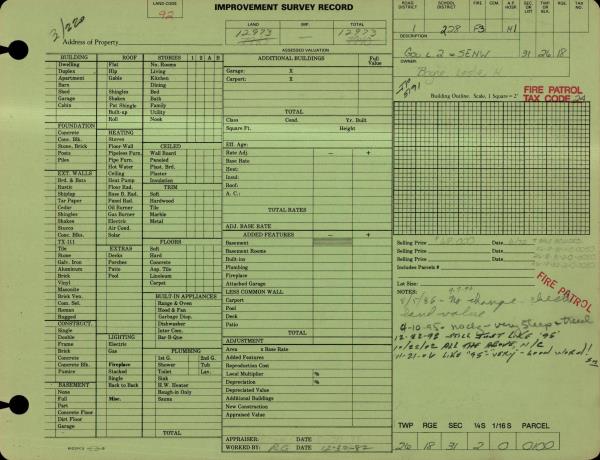 IMPROVEMENT SURVEY RECORD
LAND CODE
92
3/220
Address of Property
LAND IMP. TOTAL
12973 — 12973
ASSESSED VALUATION
ROAD DISTRICT SCHOOL DISTRICT FIRE A.P. HOSP. TAX NO.
1 228 F3 H1
DESCRIPTION SEC. OR LOT TWP. OR BLK. RGE
Gov L 2 & SENW 31 26 18
OWNER
FIRE PATROL
TAX CODE 24
Building Outline. Scale, 1 Square = 2'
BUILDING
Dwelling
Duplex
Apartment
Barn
Shed
Garage
Cabin
ROOF
Flat
Hip
Gable
Shingles
Shakes
Pat Shingle
Built-up
Roll
STORIES 1 2 A B
No. Rooms
Living
Kitchen
Dining
Bed
Bath
Family
Utility
Nook
FOUNDATION
Concrete
Conc. Blk.
Stone, Brick
Posts
Piles
HEATING
Stoves
Floor-Wall
Pipeless Furn.
Pipe Furn.
Hot Water
Ceiling
Heat Pump
Floor Rad.
Base B. Rad.
Panel Rad.
Oil Burner
Gas Burner
Electric
Air Cond.
Solar
CEILED
Wall Board
Paneled
Plast. Brd.
Plaster
Insulation
TRIM
Soft
Hardwood
Tile
Marble
Metal
EXT. WALLS
Brd. & Bats
Rustic
Shiplap
Tar Paper
Cedar
Shingles
Shakes
Stucco
Conc. Blks.
TX 111
Tile
Stone
Galv. Iron
Aluminum
Brick
Vinyl
Masonite
Brick Ven.
Com. Sel.
Roman
Rugged
EXTRAS
Decks
Porches
Patio
Pool
FLOORS
Soft
Hard
Concrete
Asp. Tile
Linoleum
Carpet
BUILT-IN APPLIANCES
Range & Oven
Hood & Fan
Garbage Disp.
Dishwasher
Inter Com.
Bar-B-Que
CONSTRUCT.
Single
Double
Frame
Brick
Concrete
Concrete Blk.
Pumice
LIGHTING
Electric
Gas
Fireplace
Stacked
Single
Back to Back
Misc.
PLUMBING
1st G. 2nd G.
Shower Tub
Toilet Lav.
Sink
H.W. Heater
Rough-in Only
Sauna
BASEMENT
None
Full
Part
Concrete Floor
Dirt Floor
Garage
TOTAL
ADDITIONAL BUILDINGS Full Value
Garage: X
Carport: X
TOTAL
Class Cond. Yr. Built
Square Ft. Height
Eff. Age:
Rate Adj. − +
Base Rate
Heat:
Insul:
Roof:
A. C.:
TOTAL RATES
ADJ. BASE RATE
ADDED FEATURES − +
Basement
Basement Rooms
Built-ins
Plumbing
Fireplace
Attached Garage
LESS COMMON WALL
Carport
Pool
Deck
Patio
TOTAL
ADJUSTMENT
Area x Base Rate
Added Features
Reproduction Cost
Local Multiplier %
Depreciation %
Depreciated Value
Additional Buildings
New Construction
Appraised Value
APPRAISER: DATE
WORKED BY: RG DATE 12-30-82
Selling Price Date
Selling Price Date
Selling Price Date
Includes Parcels #
Lot Size:
FIRE PATROL
NOTES:
8/5/86 - No change - check
land value
4-10-95 - rocky - very steep & treed
12-22-98 STILL JUST LIKE '95
11/22/02 ALL THE ABOVE, N/C
11-21-06 LIKE "95" VERY - Good word!!
TWP RGE SEC ¼S 1/16S PARCEL
26 18 31 2 0 0100